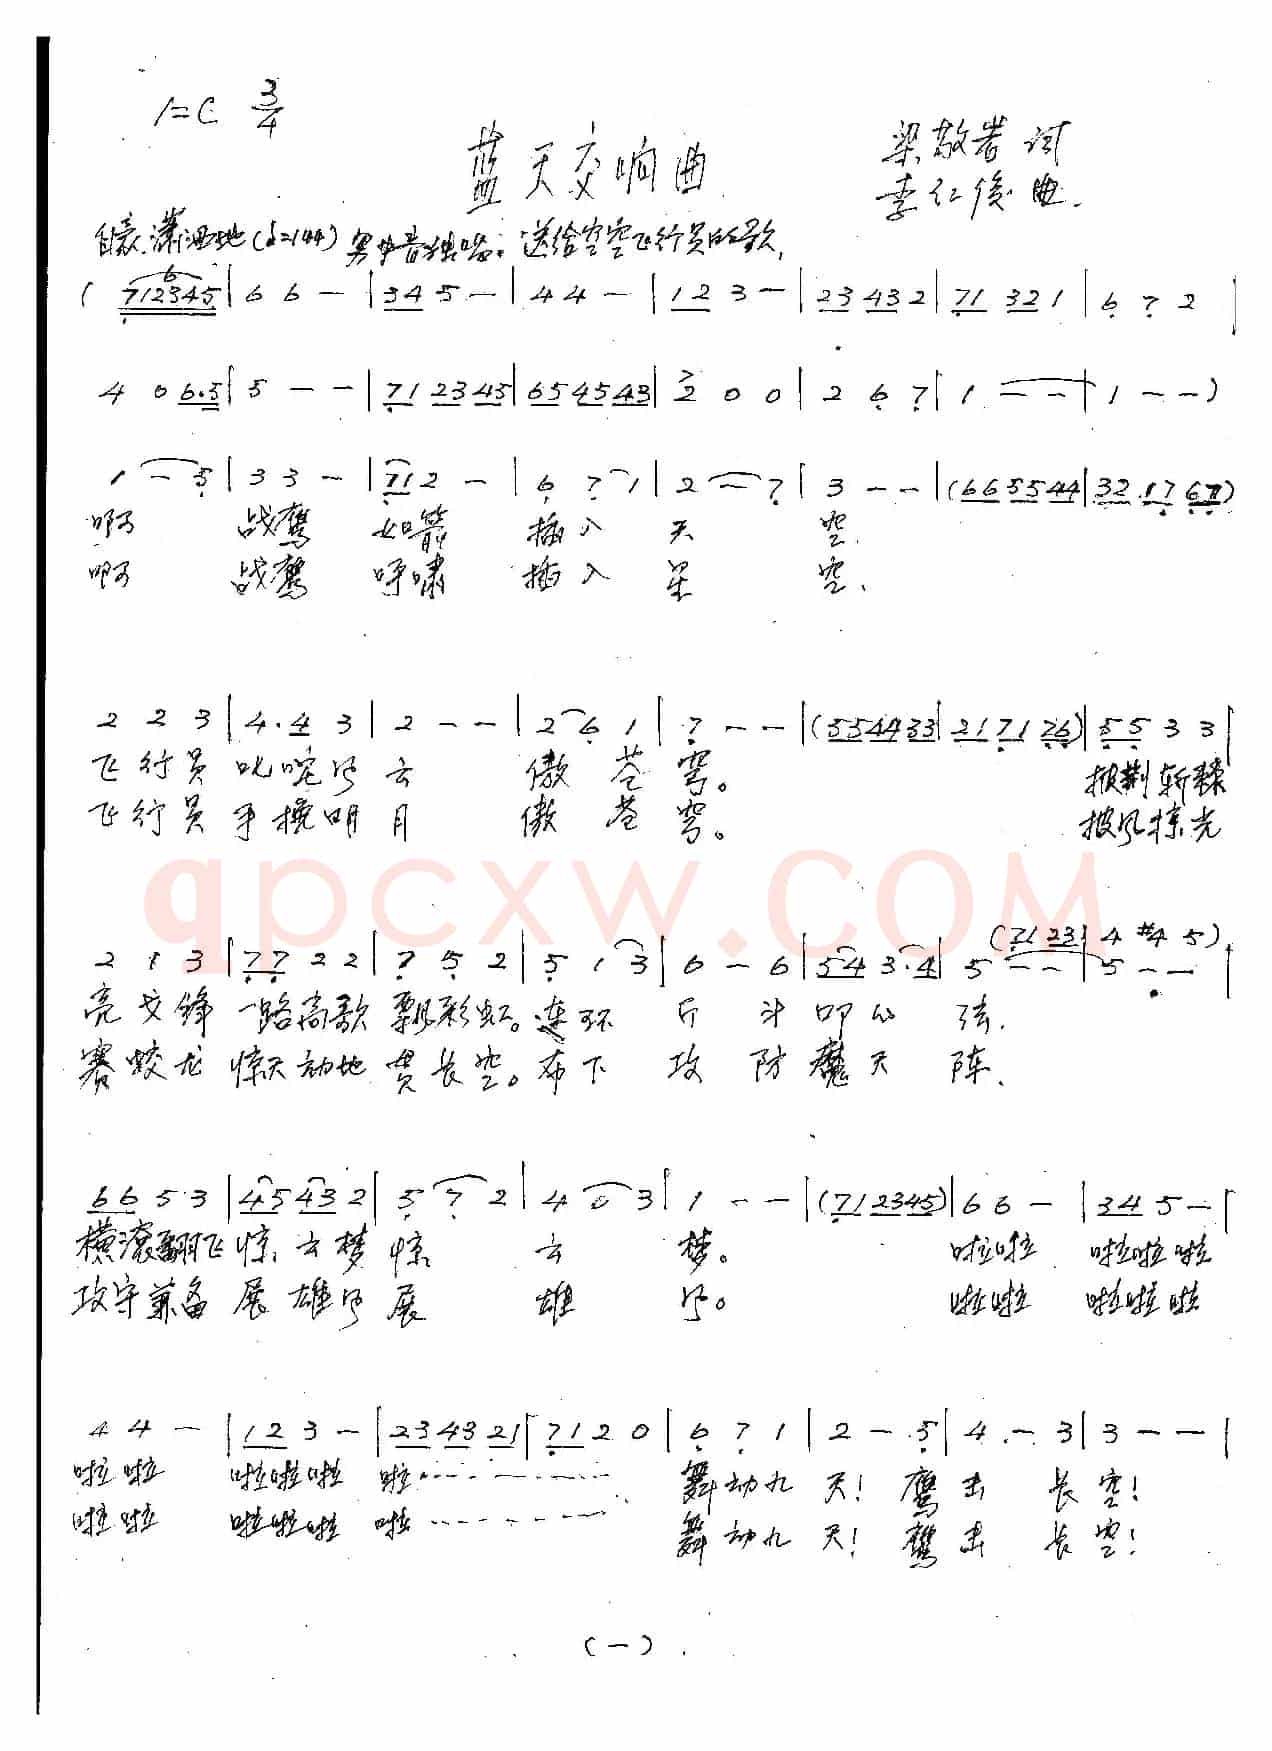 1=C 3/4
蓝天交响曲
梁敬岩 词
李仁俊 曲.
自豪.潇洒地(♩=144) 男中音独唱: 送给空军飞行员的歌
( 712345 | 6 6 — | 345 — | 4 4 — | 12 3 — | 23 43 2 | 71 32 1 | 6 7 2 |
4 0 6.5 | 5 — — | 71 23 45 | 65 45 43 | 2 0 0 | 2 6 7 | 1 — — | 1 — — )
1 — 5 | 3 3 — | 71 2 — | 6 7 1 | 2 — 7 | 3 — — | (66 55 44 | 32 17 67)
啊 战鹰 如箭 插入 天 空.
啊 战鹰 呼啸 插入 星 空.
2 2 3 | 4. 4 3 | 2 — — | 2 6 1 | 7 — — | (55 44 33 | 21 71 76) | 55 3 3 |
飞行员 叱咤风云 傲苍穹。 披荆斩棘
飞行员 手挽明月 傲苍穹。 披风掠光
(71 23 | 4 #4 5)
2 1 3 | 77 2 2 | 7 5 2 | 5 1 3 | 6 — 6 | 54 3.4 | 5 — — | 5 — — |
亮交锋 一路高歌 飘彩虹。连环 斤斗叩心弦.
赛蛟龙 惊天动地 贯长空。布下 攻防魔天阵.
66 5 3 | 45 43 2 | 5 7 2 | 4 0 3 | 1 — — | (71 23 45) | 6 6 — | 34 5 — |
横滚翻飞 惊云梦 惊 云 梦。 啦啦 啦啦啦
攻守兼备 展雄风 展 雄 风。 啦啦 啦啦啦
4 4 — | 12 3 — | 23 43 21 | 71 2 0 | 6 7 1 | 2 — 5 | 4 . — 3 | 3 — — |
啦啦 啦啦啦 啦………… 舞动九天! 鹰击长空!
啦啦 啦啦啦 啦………… 舞动九天! 鹰击长空!
(一)
qpcxw.COM